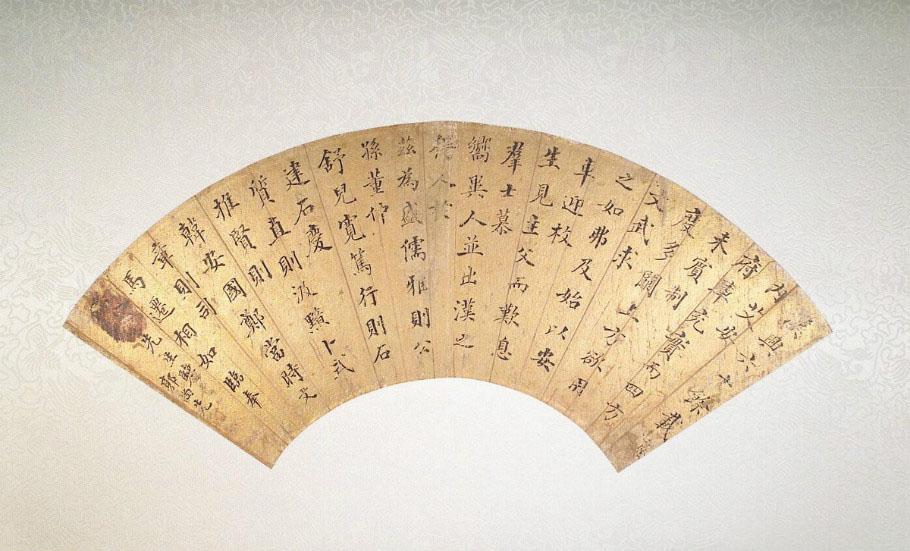 漢興六十餘載海
內艾安
府庫充實而四方
未賓制
度多闕上方欲用
文武求
之如弗及始以安
車迎枚
生見主父而歎息
羣士慕
嚮異人並出漢之
得人於
茲為盛儒雅則公
孫董仲
舒兒寬篤行則石
建石慶
質直則汲黯卜式
推賢則
韓安國鄭當時文
章則司
馬遷相如 臨奉
先生 郭尚先